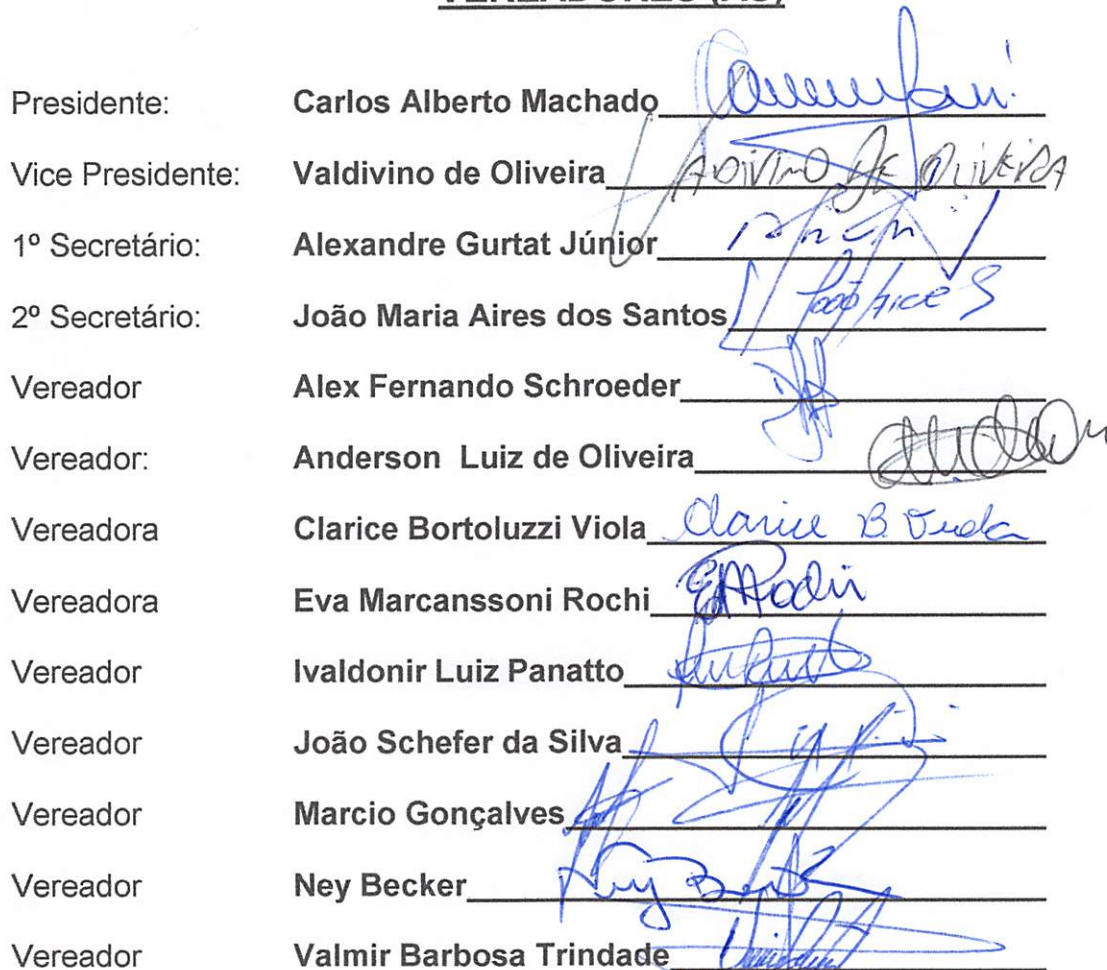 VEREADORES (AS)
Presidente: Carlos Alberto Machado
Vice Presidente: Valdivino de Oliveira VALDIVINO DE OLIVEIRA
1º Secretário: Alexandre Gurtat Júnior
2º Secretário: João Maria Aires dos Santos
Vereador Alex Fernando Schroeder
Vereador: Anderson Luiz de Oliveira
Vereadora Clarice Bortoluzzi Viola Clarice B. Viola
Vereadora Eva Marcanssoni Rochi
Vereador Ivaldonir Luiz Panatto
Vereador João Schefer da Silva
Vereador Marcio Gonçalves
Vereador Ney Becker
Vereador Valmir Barbosa Trindade